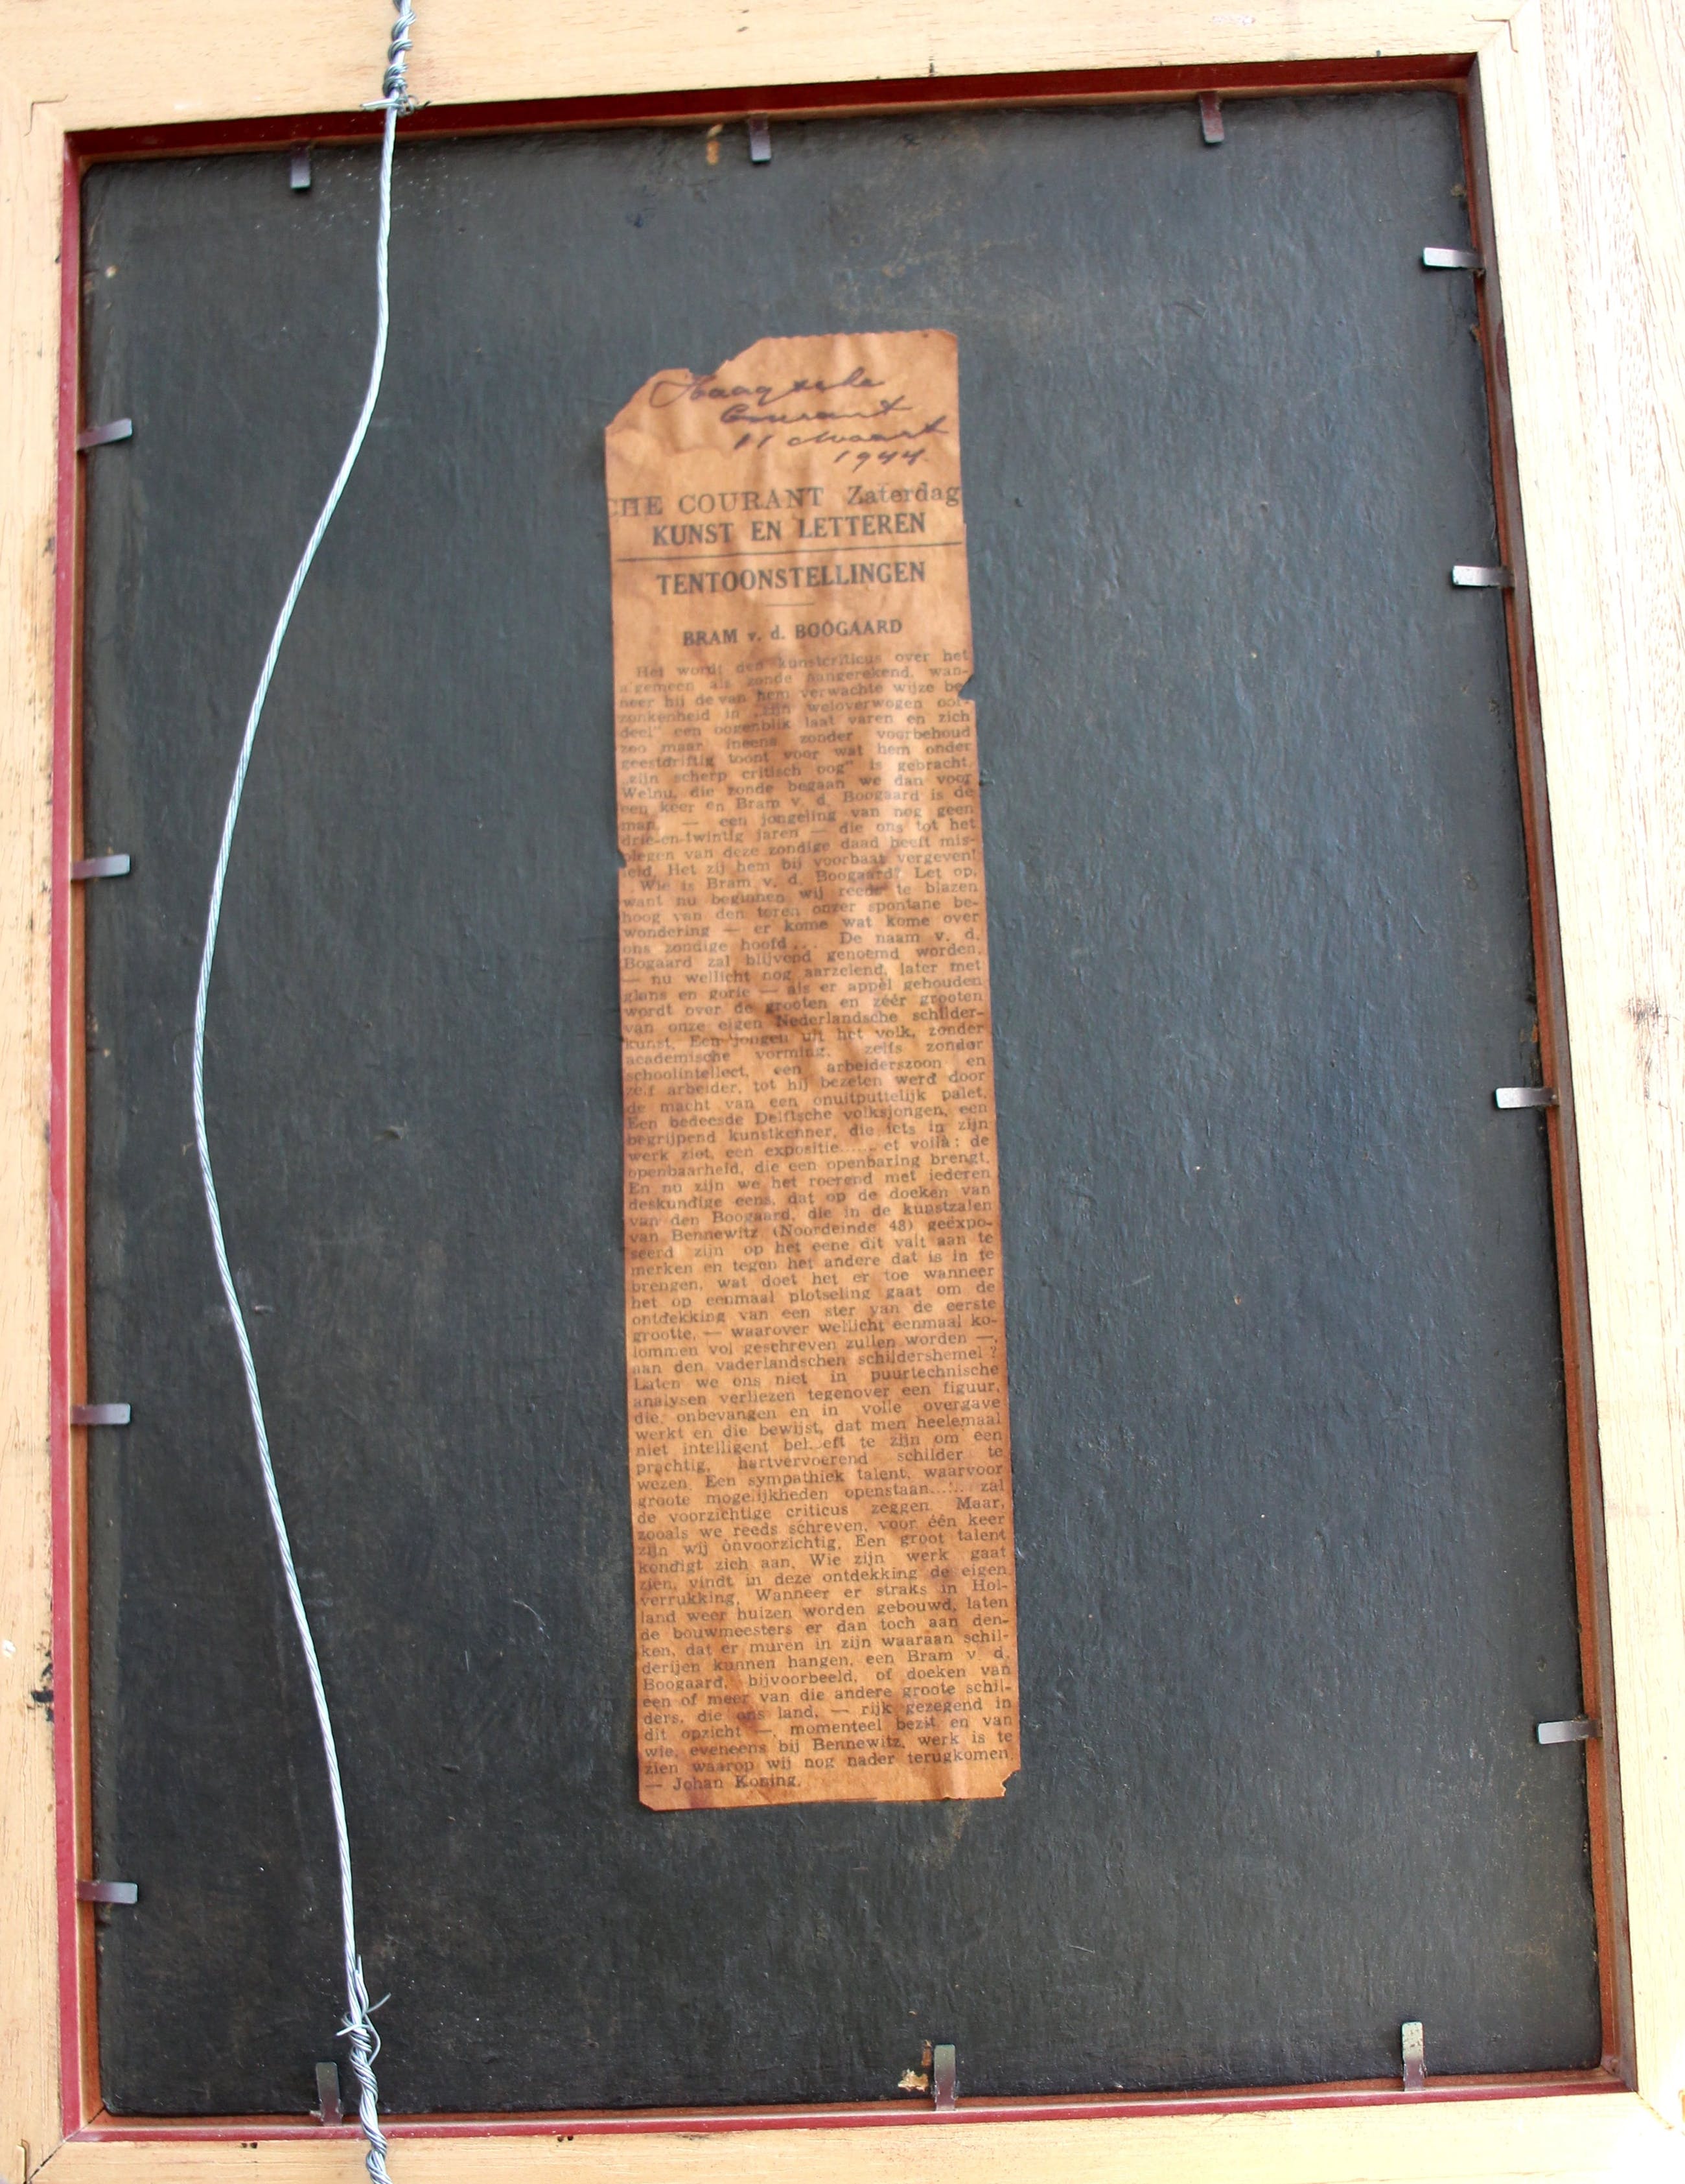 Haagsche
Courant
11 Maart
1944
CHE COURANT Zaterdag
KUNST EN LETTEREN
TENTOONSTELLINGEN
BRAM v. d. BOOGAARD
Het wordt den kunstcriticus over het
algemeen als zonde aangerekend, wan-
neer hij de van hem verwachte wijze be-
zonkenheid in „zijn weloverwogen oor-
deel" een oogenblik laat varen en zich
zoo maar ineens zonder voorbehoud
geestdriftig toont voor wat hem onder
„zijn scherp critisch oog" is gebracht.
Welnu, die zonde begaan we dan voor
een keer en Bram v. d. Boogaard is de
man, — een jongeling van nog geen
drie-en-twintig jaren — die ons tot het
plegen van deze zondige daad heeft mis-
leid. Het zij hem bij voorbaat vergeven!
Wie is Bram v. d. Boogaard? Let op,
want nu beginnen wij reeds te blazen
hoog van den toren onzer spontane be-
wondering — er kome wat kome over
ons zondige hoofd... De naam v. d.
Bogaard zal blijvend genoemd worden,
— nu wellicht nog aarzelend, later met
glans en gorie — als er appèl gehouden
wordt over de grooten en zéér grooten
van onze eigen Nederlandsche schilder-
kunst. Een jongen uit het volk, zonder
academische vorming, zelfs zonder
schoolintellect, een arbeiderszoon en
zelf arbeider, tot hij bezeten werd door
de macht van een onuitputtelijk palet.
Een bedeesde Delftsche volksjongen, een
begrijpend kunstkenner, die iets in zijn
werk ziet, een expositie...... et voilà: de
openbaarheid, die een openbaring brengt.
En nu zijn we het roerend met iederen
deskundige eens, dat op de doeken van
van den Boogaard, die in de kunstzalen
van Bennewitz (Noordeinde 48) geëxpo-
seerd zijn op het eene dit valt aan te
merken en tegen het andere dat is in te
brengen, wat doet het er toe wanneer
het op eenmaal plotseling gaat om de
ontdekking van een ster van de eerste
grootte, — waarover wellicht eenmaal ko-
lommen vol geschreven zullen worden —,
aan den vaderlandschen schildershemel?
Laten we ons niet in puurtechnische
analysen verliezen tegenover een figuur,
die, onbevangen en in volle overgave
werkt en die bewijst, dat men heelemaal
niet intelligent behoeft te zijn om een
prachtig, hartvervoerend schilder te
wezen. Een sympathiek talent, waarvoor
groote mogelijkheden openstaan...... zal
de voorzichtige criticus zeggen. Maar,
zooals we reeds schreven, voor één keer
zijn wij onvoorzichtig. Een groot talent
kondigt zich aan. Wie zijn werk gaat
zien, vindt in deze ontdekking de eigen
verrukking. Wanneer er straks in Hol-
land weer huizen worden gebouwd, laten
de bouwmeesters er dan toch aan den-
ken, dat er muren in zijn waaraan schil-
derijen kunnen hangen, een Bram v. d.
Boogaard, bijvoorbeeld, of doeken van
een of meer van die andere groote schil-
ders, die ons land, — rijk gezegend in
dit opzicht — momenteel bezit en van
wie, eveneens bij Bennewitz, werk is te
zien waarop wij nog nader terugkomen
— Johan Koning.